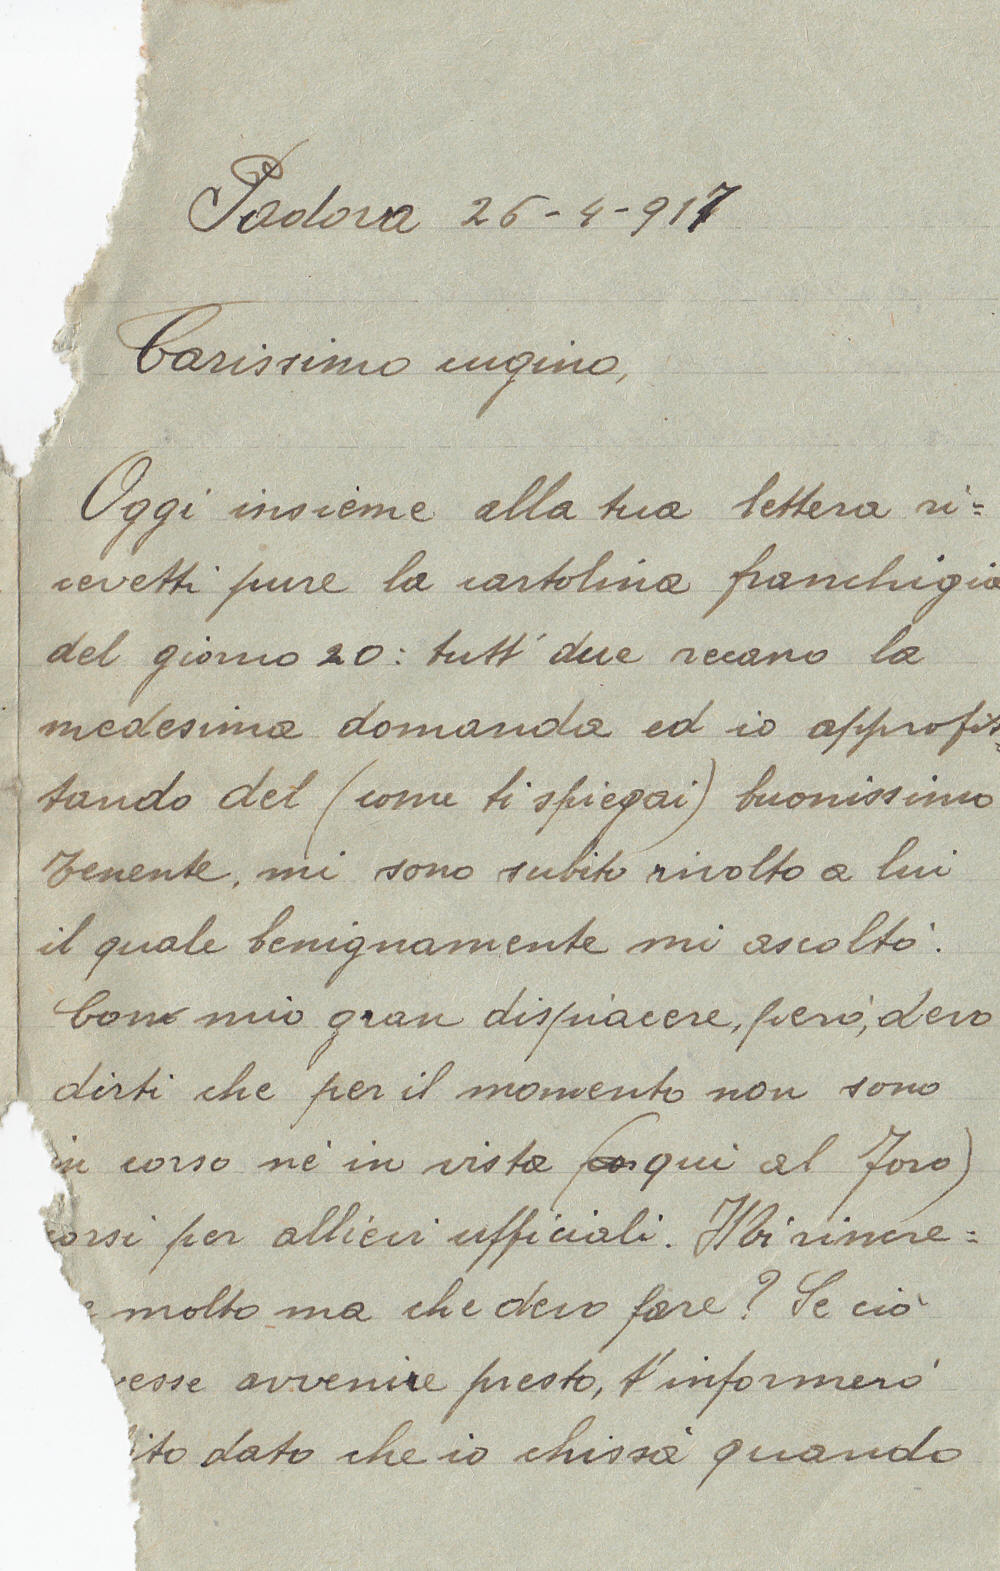 Padova 26-4-917
Carissimo cugino,
Oggi insieme alla tua lettera ri=
cevetti pure la cartolina franchigia
del giorno 20: tutt' due recano la
medesima domanda ed io approfit=
tando del (come ti spiegai) buonissimo
Tenente, mi sono subito rivolto a lui
il quale benignamente mi ascoltò.
Con mio gran dispiacere, però, devo
dirti che per il momento non sono
in corso nè in vista (qui al Foro)
orsi per allievi ufficiali. Mi rincre=
e molto ma che devo fare? Se ciò
vesse avvenire presto, t'informerò
ito dato che io chissà quando